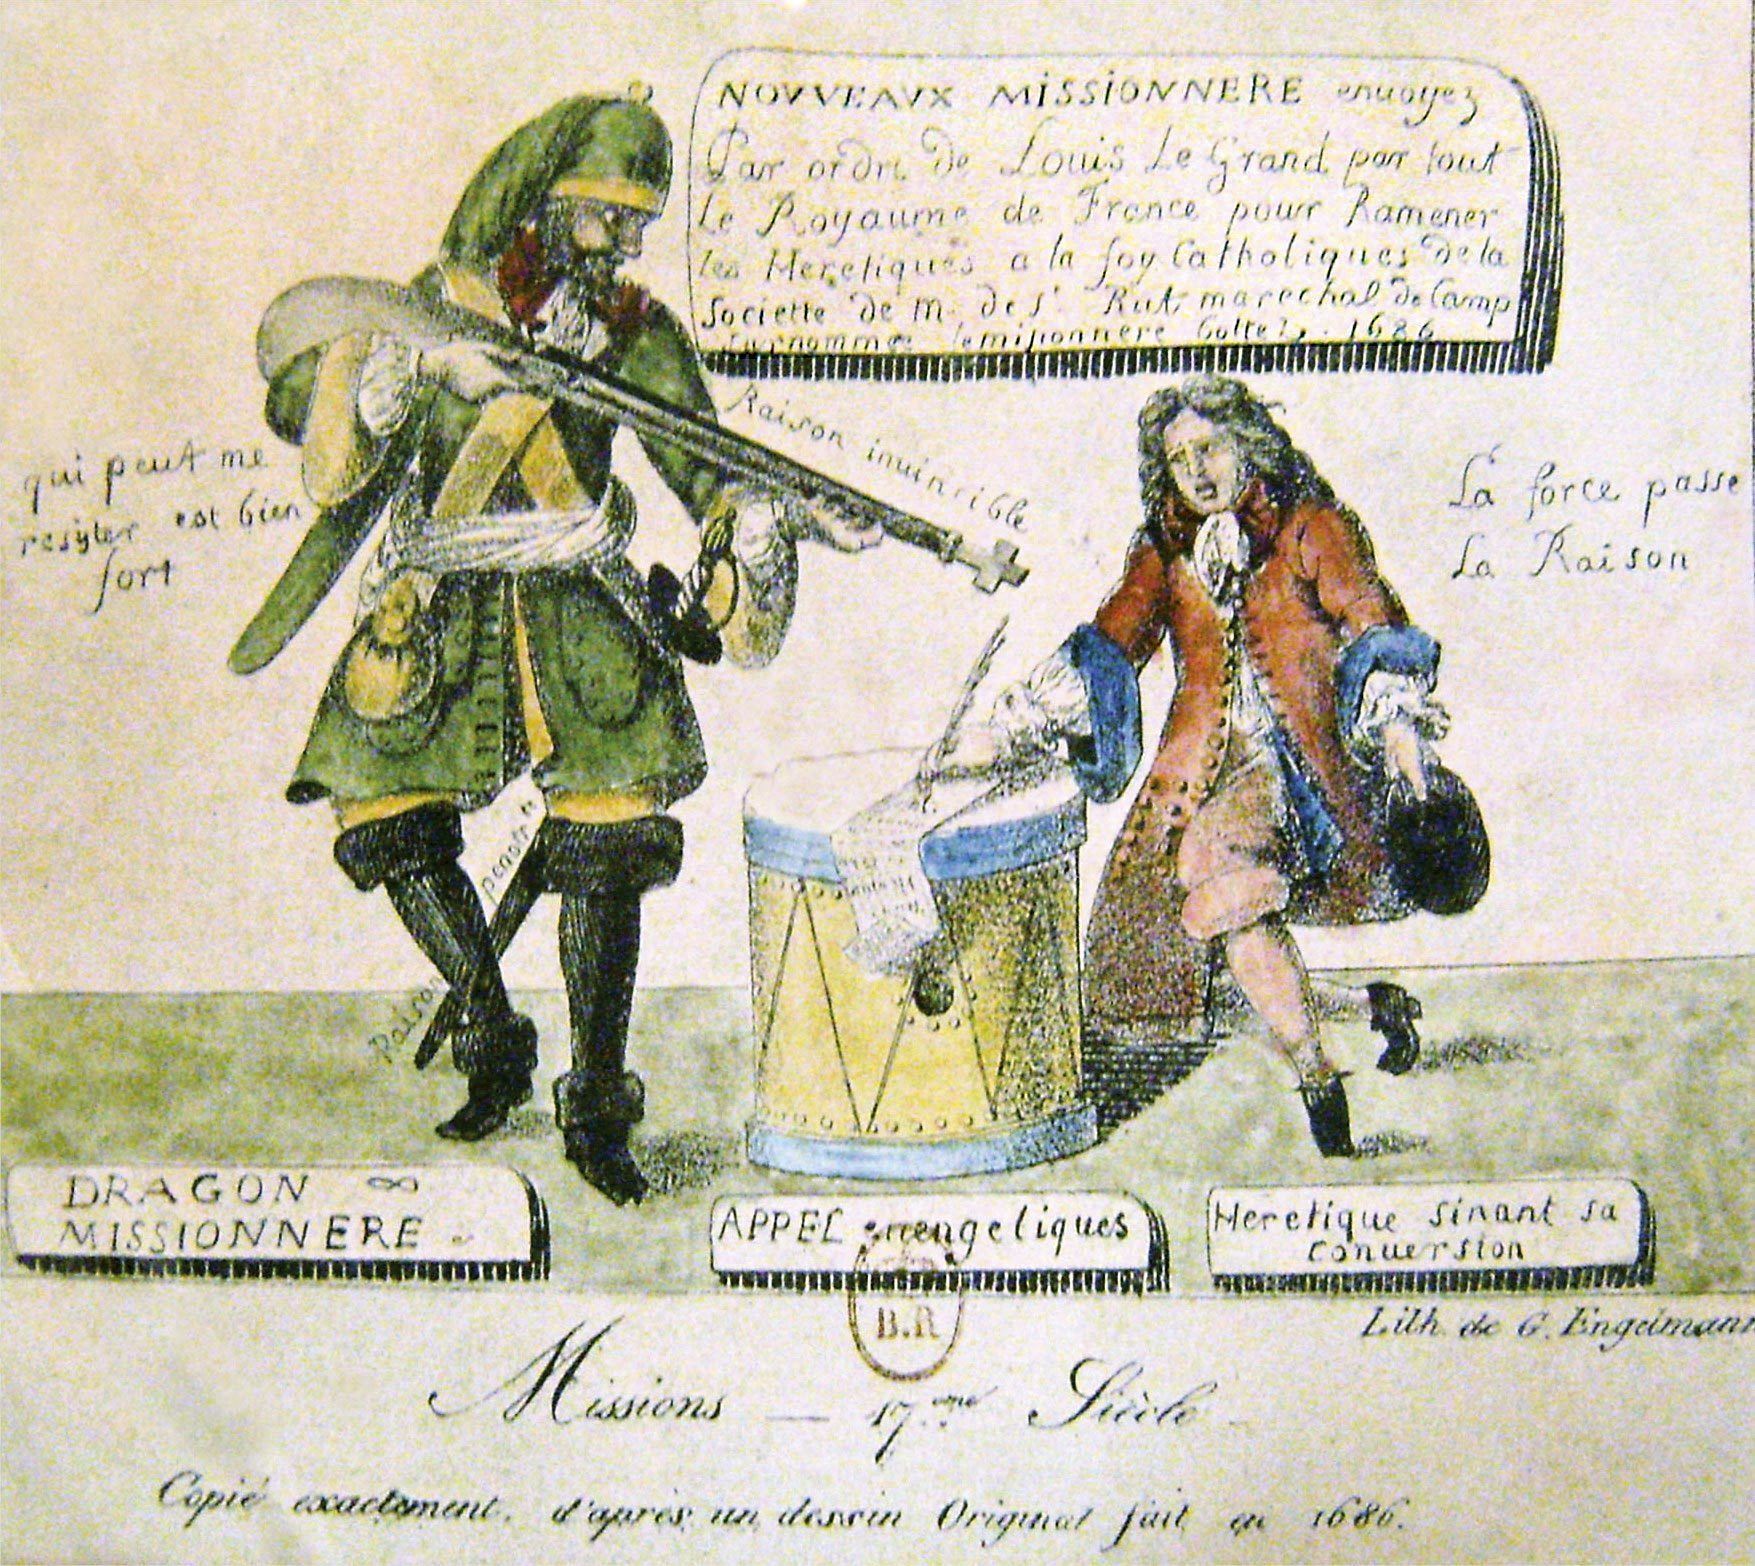 NOVVEAVX MISSIONNERE enuoyez
Par ordre de Louis Le Grand par tout
Le Royaume de France pour Ramener
les Heretiques a la foy Catholiques de la
Societte de M. de St. Rut marechal de Camp
surnommée Lemiſionnere botte 1686
Raison inuincible
qui peut me
resyter est bien
fort
La force passe
La Raison
penetrante
Raison
DRAGON
MISSIONNERE
APPEL euengeliques
Heretique sinant sa
conuersion
Lith. de G. Engelmann
B.R
Missions — 17.eme Siècle
Copié exactement, d'après un dessin Original fait en 1686.